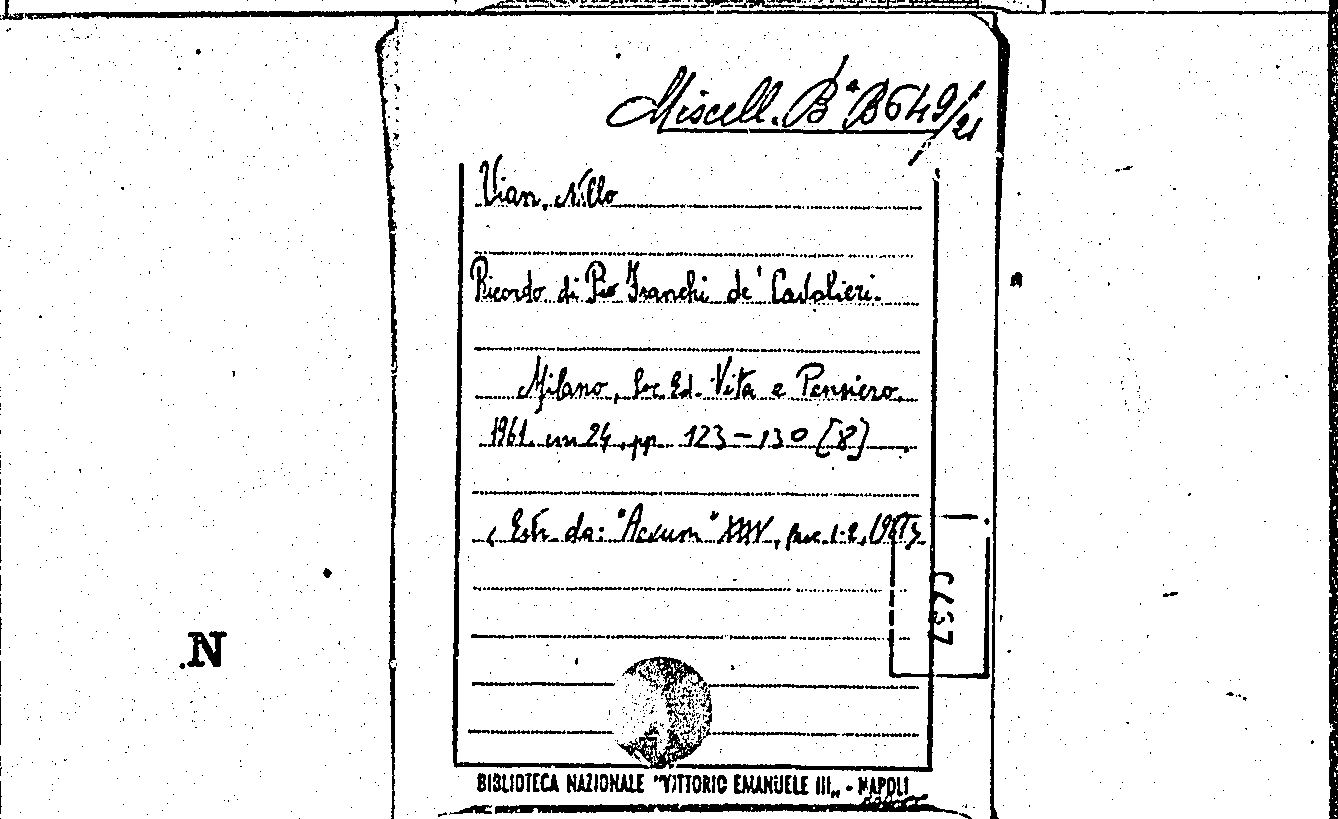 Miscell. Bª B649/21
Vian, Nello
Ricordo di Pio Franchi de' Cavalieri.
Milano, Soc. Ed. Vita e Pensiero,
1961. cm 24, pp. 123-130 [8]
Estr. da: "Aevum" XXXV, fasc. 1-2, 1961).
.N
BIBLIOTECA NAZIONALE "VITTORIO EMANUELE III„ - NAPOLI